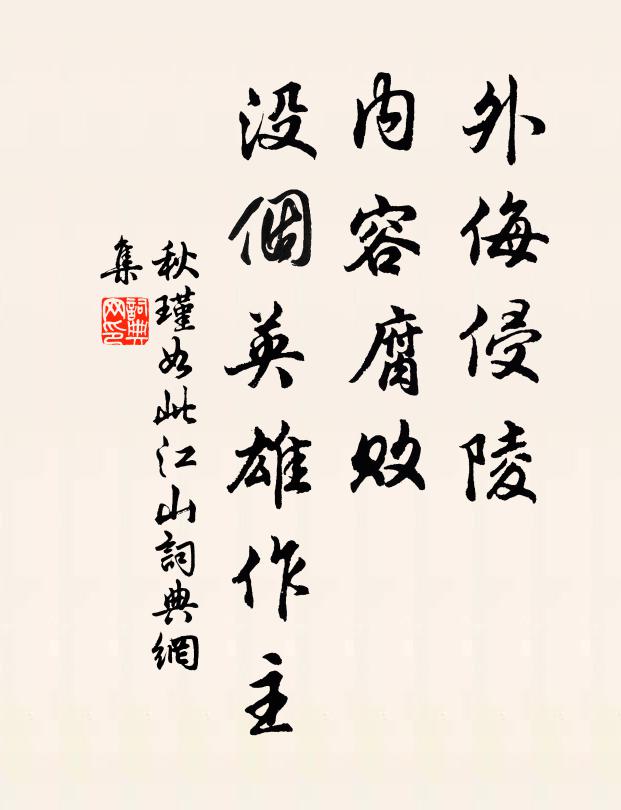 外侮侵陵
内容腐败
没個英雄作主
秋瑾如此江山詞典網
集
詞典
网印